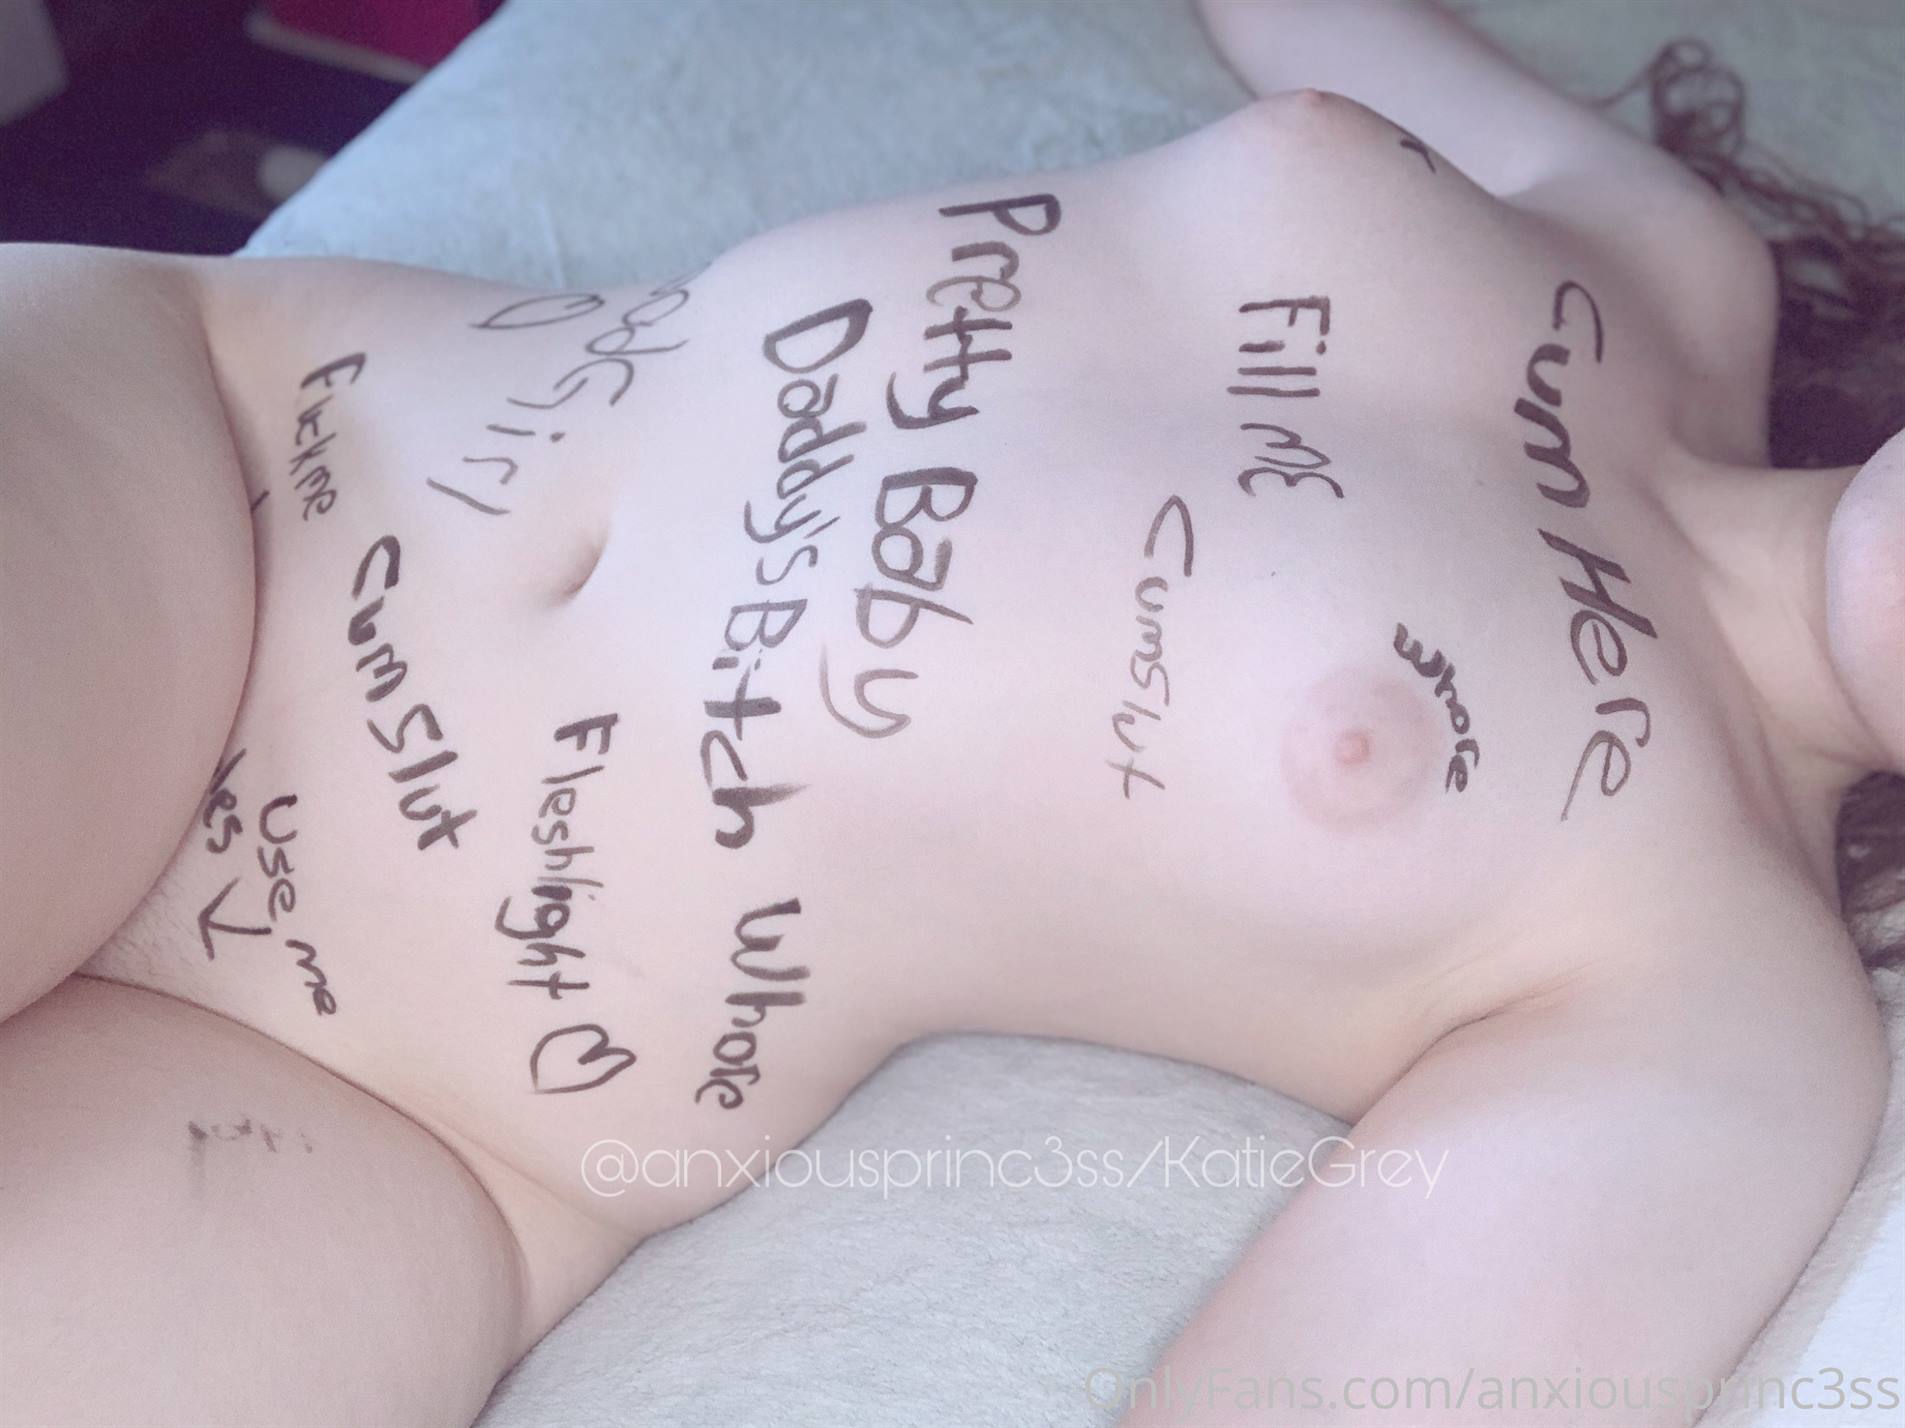 Cum Here
Whore
Fill ME
Cumslut
Pretty Baby
Daddy's Bitch
Whore
Good Girl
Fleshlight
Cum Slut
Fuck me
Use me
Yes
@anxiousprinc3ss/KatieGrey
OnlyFans.com/anxiousprinc3ss